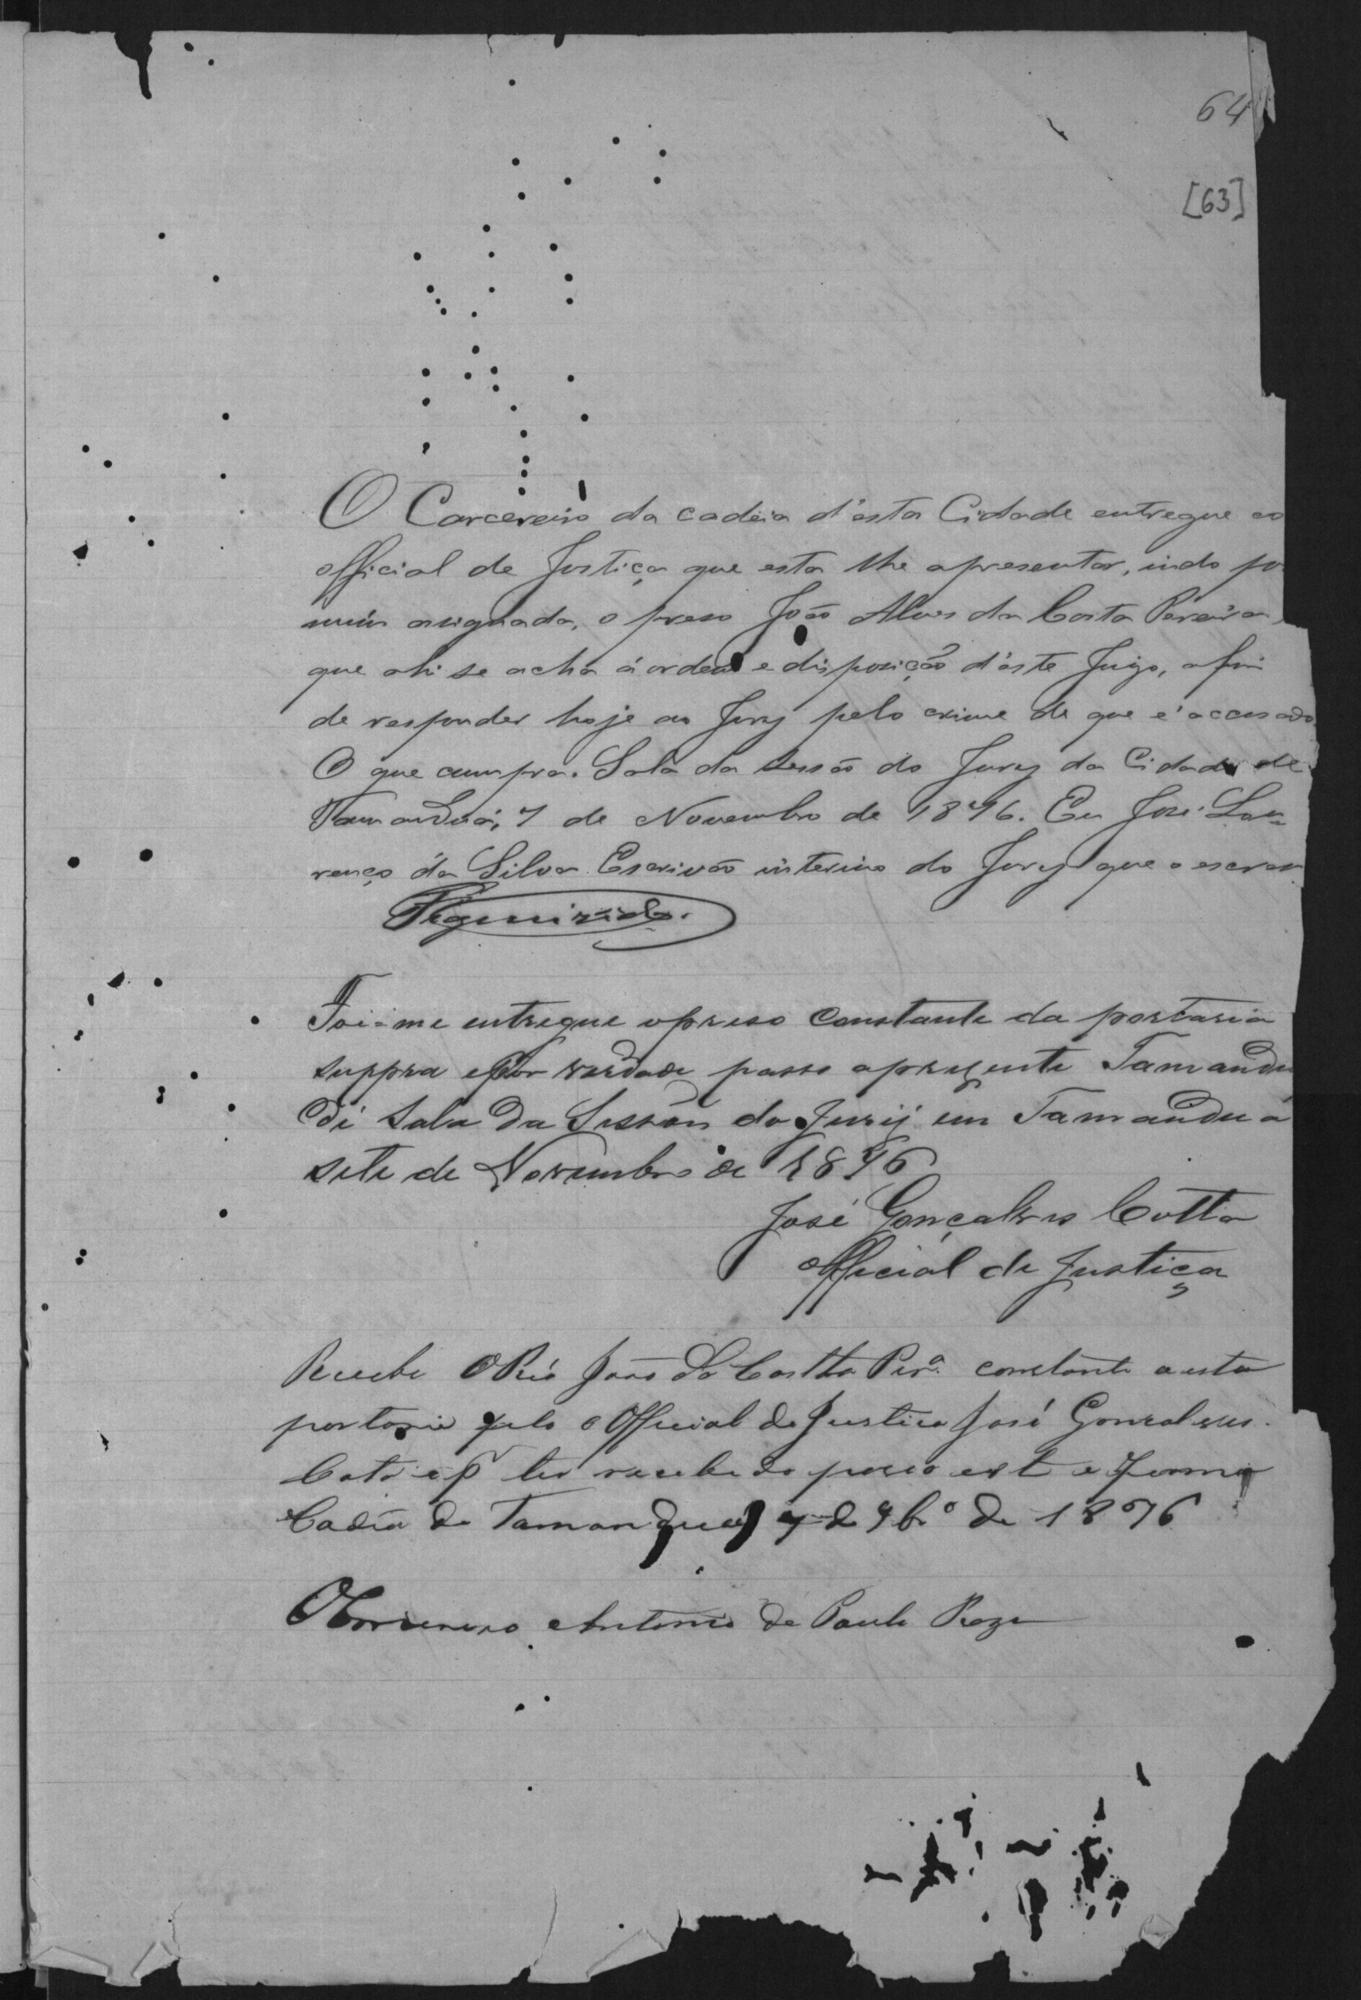 64
[63]
O Carcereiro da cadeia d'esta Cidade entregue ao
official de Justiça que esta lhe apresentar, indo po
mim asignada, o preso João Alves da Costa Pereira,
que ahi se acha á ordem e disposição d'este Juizo, afim
de responder hoje ao Jury pelo crime de que é accusado
O que cumpra. Sala da Sessão do Jury da Cidade de
Tamanduá, 7 de Novembro de 1896. Eu José Lou-
renço da Silva Escrivão interino do Jury que o escrev
Foi-me entregue o preso constante da portaria
suppra e por verdade passo aprezente Tamandu
di Sala da Sessão do Jurij em Tamandua
sete de Novembro de 1896
José Gonçalves Cotta
official de Justiça
Recebi O Réo João da Costta Pera. constante a esta
portaria pelo o Official de Justica José Gonsalves
Cota e p ter recebido paso este e firmo
Cadia de Tamandua 7 de 9bro de 1896
O Carsereiro Antonio de Paula